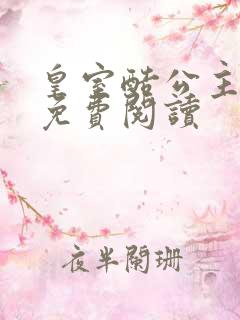 皇室酷公主
免費閱讀
夜半闌珊